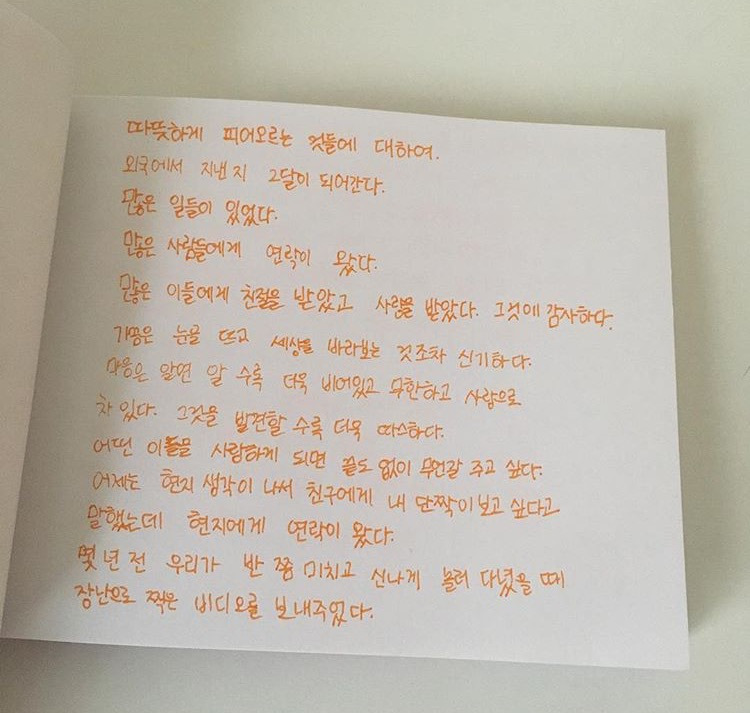 따뜻하게 피어오르는 것들에 대하여.
외국에서 지낸지 2달이 되어간다.
많은 일들이 있었다.
많은 사람들에게 연락이 왔다.
많은 이들에게 친절을 받았고 사랑을 받았다. 그것에 감사하다.
가끔은 눈을 뜨고 세상을 바라보는 것조차 신기하다.
마음은 알면 알 수록 더욱 비어있고 무한하고 사랑으로
차 있다. 그것을 발견할 수록 더욱 따스하다.
어떤 이들을 사랑하게 되면 끝도 없이 무언갈 주고 싶다.
어제는 현지 생각이 나서 친구에게 내 단짝이 보고 싶다고
말했는데 현지에게 연락이 왔다.
몇 년 전 우리가 반 쯤 미치고 신나게 놀러 다녔을 때
장난으로 찍은 비디오를 보내주었다.